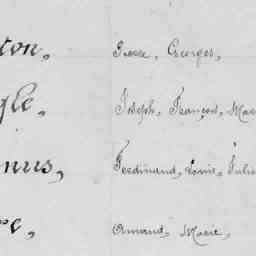 ton, Pierre, Georges,
gle, Joseph, François, Marie
nus, Ferdinand, Louis, Julie
re, Armand, Marie,